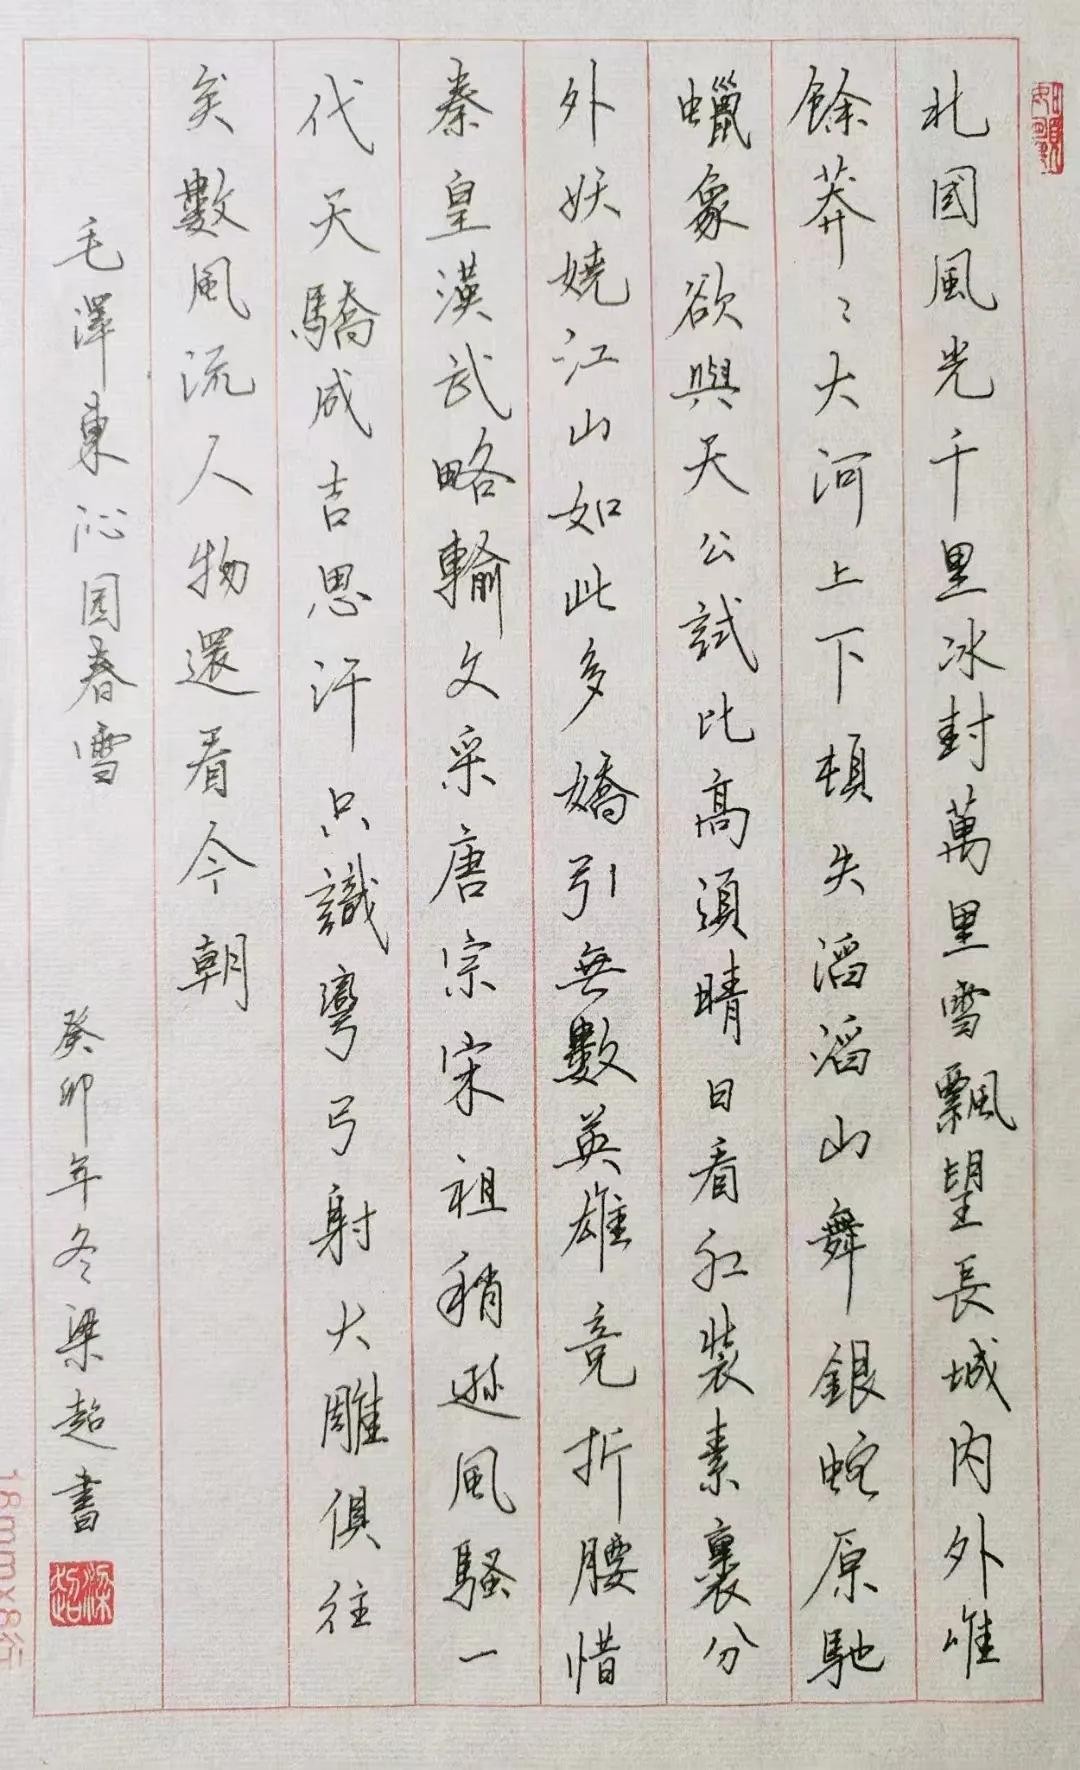 北國風光千里冰封萬里雪飄望長城内外唯
餘莽〻大河上下頓失滔滔山舞銀蛇原馳
蠟象欲與天公試比高須晴日看红裝素裹分
外妖嬈江山如此多嬌引無數英雄竞折腰惜
秦皇漢武略輸文采唐宗宋祖稍遜風騷一
代天驕成吉思汗只識彎弓射大雕俱往
矣數風流人物還看今朝
毛澤東沁园春雪
癸卯年冬梁超書
梁超
18mmx8行